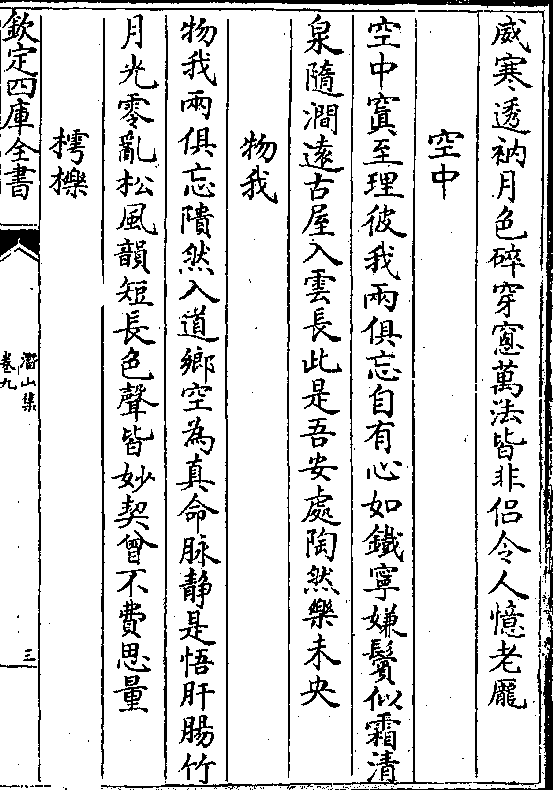 威寒透衲月色碎穿窻萬法皆非侣令人憶老龎
空中
空中寘至理彼我兩俱忘自有心如鐵寧嫌鬢似霜清
泉隨澗遠古屋入雲長此是吾安處陶然樂未央
物我
物我兩俱忘隤然入道鄉空為真命脉静是悟肝腸竹
月光零亂松風韻短長色聲皆妙契曾不費思量
樗櫟
欽定四庫全書
潛山集
卷九
三